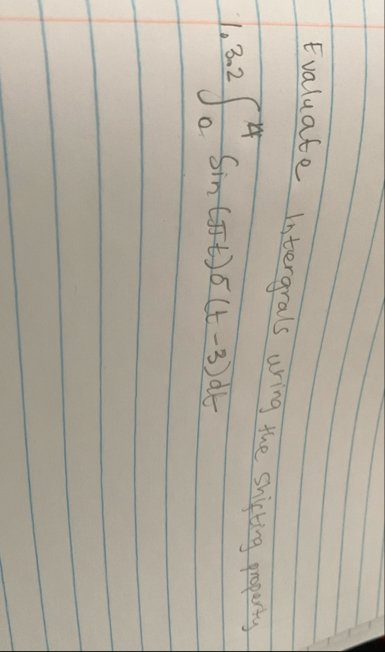 Evaluate Intergrals uring the shifting property
1.3.2 ∫₀⁴ Sin(πt)δ(t-3)dt